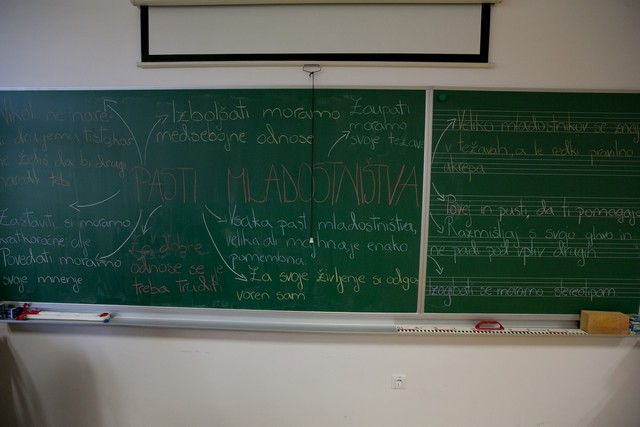 Nikoli ne nare
drugemu tistega kar
ne želiš da bi drugi
naredil tebi
Izboljšati moramo
medsebojne odnose
Zaupati
moramo
svoje težave
PASTI MLADOSTNIŠTVA
Zastaviti si moramo
kratkoročne cilje
Povedati moramo
svoje mnenje
Za dobre
odnose se je
treba truditi
Vsaka past mladostništva,
velika ali majhna je enako
pomembna
Za svoje življenje si odgo
voren sam
Veliko mladostnikov se znaj
v težavah, a le redki pravilno
ukrepa
Povej in pusti, da ti pomagaj
Razmišljaj s svojo glavo in
ne padi pod vpliv drugih
Izogibati se moramo stereotipom